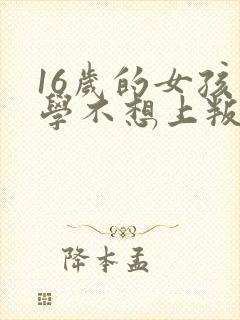 16歲的女孩
學不想上叛
降本孟